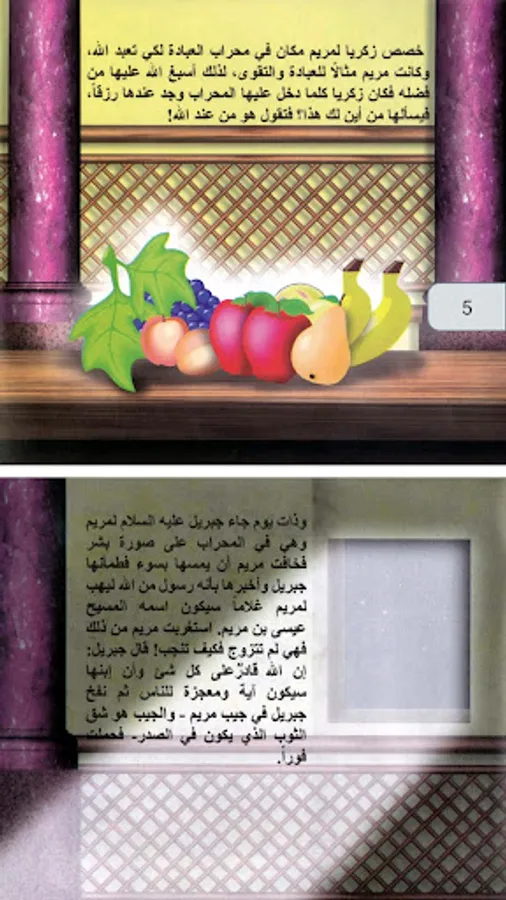 خصص زكريا لمريم مكان في محراب العبادة لكي تعبد الله،
وكانت مريم مثالًا للعبادة والتقوى، لذلك أسبغ الله عليها من
فضله فكان زكريا كلما دخل عليها المحراب وجد عندها رزقاً،
فيسألها من أين لك هذا؟ فتقول هو من عند الله!
5
وذات يوم جاء جبريل عليه السلام لمريم
وهي في المحراب على صورة بشر
فخافت مريم أن يمسها بسوء فطمأنها
جبريل وأخبرها بأنه رسول من الله ليهب
لمريم غلاماً سيكون اسمه المسيح
عيسى بن مريم. استغربت مريم من ذلك
فهي لم تتزوج فكيف تنجب! قال جبريل:
إن الله قادرٌ على كل شئ وأن إبنها
سيكون آية ومعجزة للناس ثم نفخ
جبريل في جيب مريم - والجيب هو شق
الثوب الذي يكون في الصدر- فحملت
فوراً.